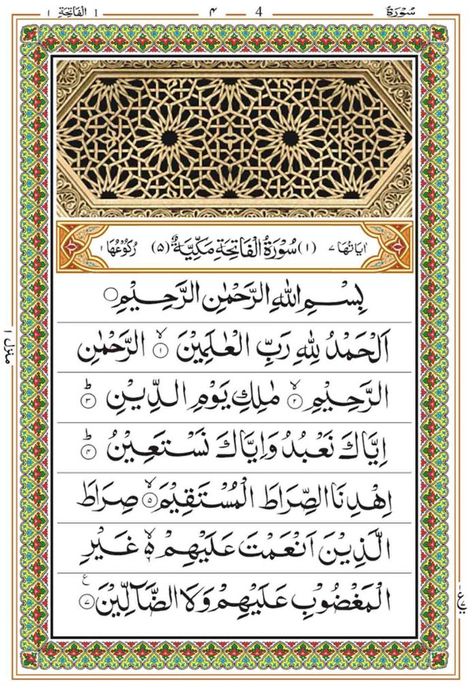 سُوۡرَةُ ۴ 4 اَلْفَاتِحَة ۱
اٰيَاتُهَا ۷ (۱) سُوْرَةُ الْفَاتِحَةِ مَكِّيَّةٌ (۵) رُكُوْعُهَا ۱
بِسْمِ اللهِ الرَّحْمٰنِ الرَّحِيْمِ
اَلْحَمْدُ لِلهِ رَبِّ الْعٰلَمِيْنَ ۙ﴿۱﴾ الرَّحْمٰنِ
الرَّحِيْمِ ۙ﴿۲﴾ مٰلِكِ يَوْمِ الدِّيْنِ ؕ﴿۳﴾
اِيَّاكَ نَعْبُدُ وَاِيَّاكَ نَسْتَعِيْنُ ؕ﴿۴﴾
اِهْدِنَا الصِّرَاطَ الْمُسْتَقِيْمَ ۙ﴿۵﴾ صِرَاطَ
الَّذِيْنَ اَنْعَمْتَ عَلَيْهِمْ ۙ۬ غَيْرِ
الْمَغْضُوْبِ عَلَيْهِمْ وَلَا الضَّآلِّيْنَ ﴿۷﴾
منزل ۱